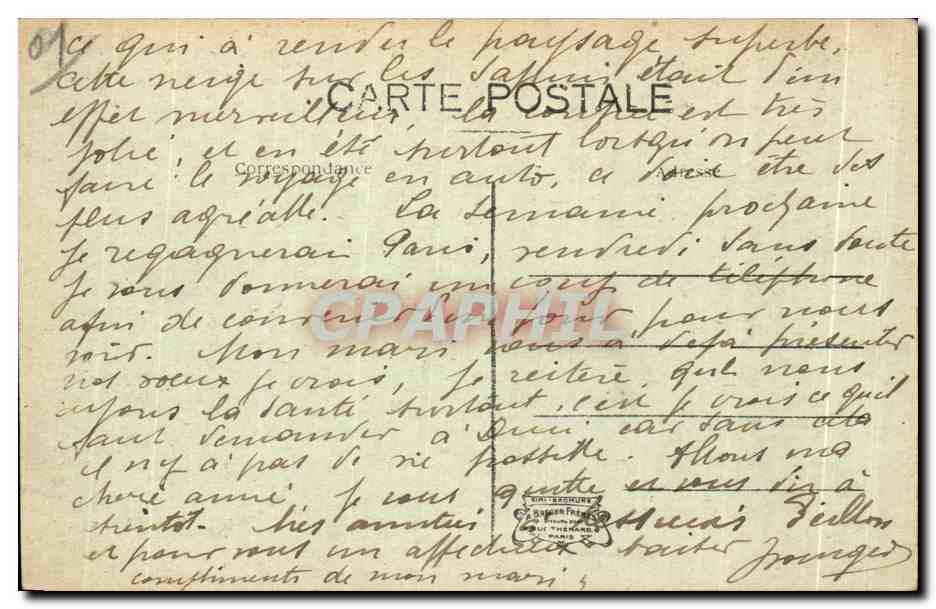 01
ce qui a rendu le paysage superbe,
cette neige sur les sapins était d'un
CARTE POSTALE
effet merveilleux, la est très
jolie, et en été surtout lorsqu'on peut
Correspondance
Adresse
faire le voyage en auto, ce doit être des
plus agréable. La semaine prochaine
je regagnerai Paris, vendredi sans doute
je vous donnerai un coup de téléphone
afin de convenir d'un jour pour nous
CPAPHIL
voir. Mon mari vous a déjà présenter
nos voeux je crois, je réitère, que nous
ayons la santé surtout, c'est je crois ce qu'il
faut demander à Dieu car sans cela
il n'y a pas de vie possible. Allons ma
chère amie je vous quitte et vous dis à
SIMI-BROMURE
A. BREGER FRÈRES
9 RUE THÉNARD
PARIS
bientôt. Mes amitiés
et pour vous un affectueux baiser
compliments de mon mari